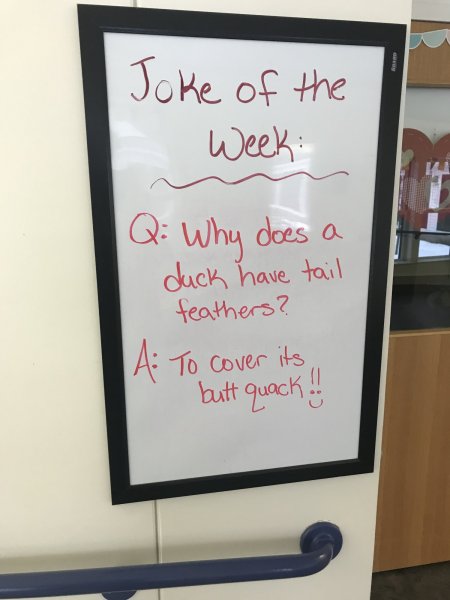 Joke of the
Week:
Q: Why does a
duck have tail
feathers?
A: To cover its
butt quack!!